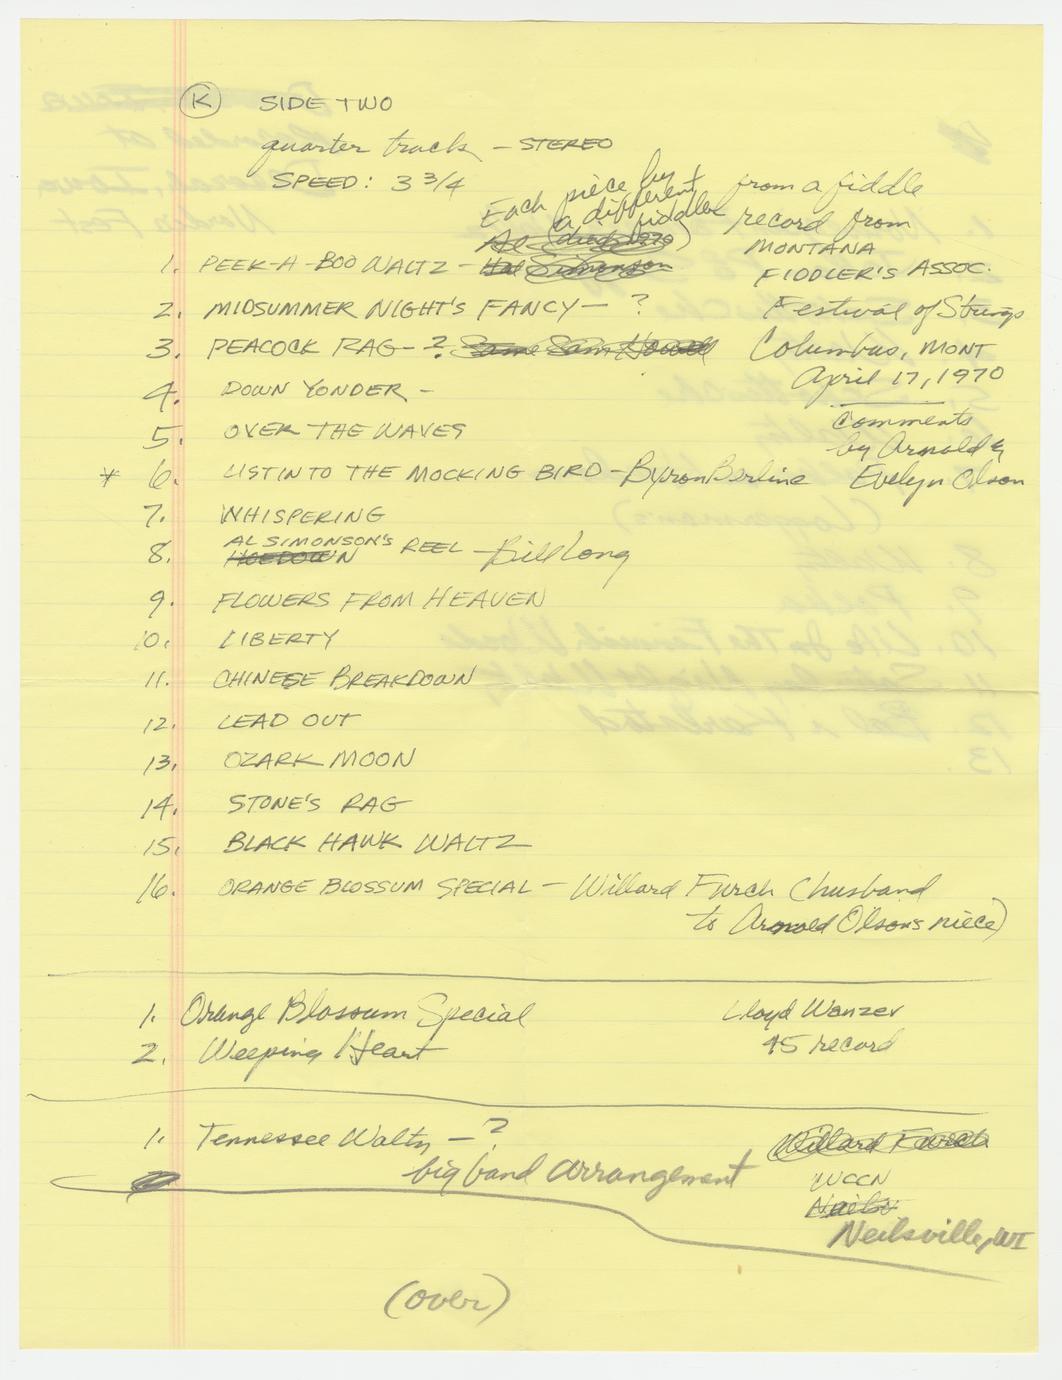 K SIDE TWO
quarter track - STEREO
SPEED: 3 3/4
Each piece by a different fiddler
from a fiddle
record from
MONTANA
FIDDLER'S ASSOC.
Festival of Strings
Columbus, MONT
April 17, 1970
comments
by Arnold &
Evelyn Olson
1. PEEK-A-BOO WALTZ - Hal Simonson
2. MIDSUMMER NIGHT'S FANCY - ?
3. PEACOCK RAG - ?
4. DOWN YONDER -
5. OVER THE WAVES
* 6. LISTIN TO THE MOCKING BIRD - Byron Berline
7. WHISPERING
8. HOEDOWN AL SIMONSON'S REEL - Bill Long
9. FLOWERS FROM HEAVEN
10. LIBERTY
11. CHINESE BREAKDOWN
12. LEAD OUT
13. OZARK MOON
14. STONE'S RAG
15. BLACK HAWK WALTZ
16. ORANGE BLOSSUM SPECIAL - Willard Furch (husband
to Arnold Olson's niece)
1. Orange Blossum Special Lloyd Wanzer
2. Weeping Heart 45 record
1. Tennessee Waltz - ?
big band arrangement
WCCN
Neilsville, WI
(over)